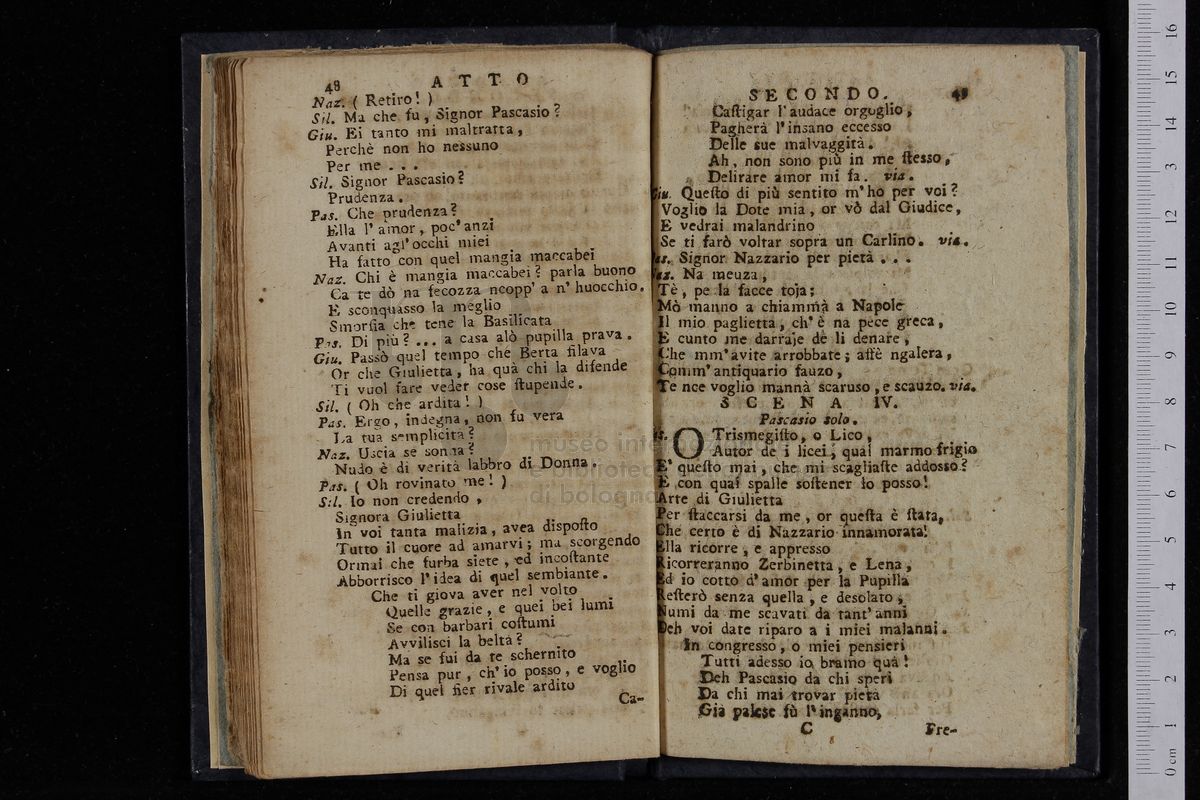 48 ATTO
Naz. ( Retiro! )
Sil. Ma che fu, Signor Pascasio?
Giu. Ei tanto mi maltratta,
Perchè non ho nessuno
Per me . . .
Sil. Signor Pascasio?
Prudenza.
Pas. Che prudenza?
Ella l'amor, poc'anzi
Avanti agl'occhi miei
Ha fatto con quel mangia maccabei
Naz. Chi è mangia maccabei? parla buono
Ca te dò na fecozza ncopp' a n' huocchio.
E sconquasso la meglio
Smorfia che tene la Basilicata
Pas. Di più? ... a casa alò pupilla prava.
Giu. Passò quel tempo che Berta filava
Or che Giulietta, ha quà chi la difende
Ti vuol fare veder cose ſtupende.
Sil. ( Oh che ardita! )
Pas. Ergo, indegna, non fu vera
La tua semplicità?
Naz. Uscia se sonna?
Nudo è di verità labbro di Donna.
Pas. ( Oh rovinato me! )
Sil. Io non credendo,
Signora Giulietta
In voi tanta malizia, avea dispoſto
Tutto il cuore ad amarvi; ma scorgendo
Ormai che furba siete, ed incoſtante
Abborrisco l'idea di quel sembiante.
Che ti giova aver nel volto
Quelle grazie, e quei bei lumi
Se con barbari coſtumi
Avvilisci la beltà?
Ma se fui da te schernito
Pensa pur, ch'io posso, e voglio
Di quel fier rivale ardito
Ca-
SECONDO. 49
Caſtigar l'audace orgoglio,
Pagherà l'insano eccesso
Delle sue malvaggità.
Ah, non sono più in me ſtesso,
Delirare amor mi fa. via.
Giu. Queſto di più sentito m'ho per voi?
Voglio la Dote mia, or vò dal Giudice,
E vedrai malandrino
Se ti farò voltar sopra un Carlino. via.
as. Signor Nazzario per pietà . . .
az. Na meuza,
Tè, pe la facce toja;
Mò manno a chiammà a Napole
Il mio paglietta, ch'è na pece greca,
E cunto me darraje de li denare,
Che mm'avite arrobbate; affè ngalera,
Comm'antiquario fauzo,
Te nce voglio mannà scaruso, e scauzo. via.
SCENA IV.
Pascasio solo.
s. O Trismegiſto, o Lico,
Autor de i licei, qual marmo frigio
E' queſto mai, che mi scagliaſte addosso?
E con quai spalle soſtener io posso!
Arte di Giulietta
Per ſtaccarsi da me, or queſta è ſtata,
Che certo è di Nazzario innamorata!
Ella ricorre, e appresso
Ricorreranno Zerbinetta, e Lena,
Ed io cotto d'amor per la Pupilla
Reſterò senza quella, e desolato,
Numi da me scavati da tant'anni
Deh voi date riparo a i miei malanni.
In congresso, o miei pensieri
Tutti adesso io bramo quà!
Deh Pascasio da chi speri
Da chi mai trovar pietà
Già palese fù l'inganno,
C Fre-
museo internazionale
e biblioteca della musica
di bologna
0 cm 1 2 3 4 5 6 7 8 9 10 11 12 13 14 15 16